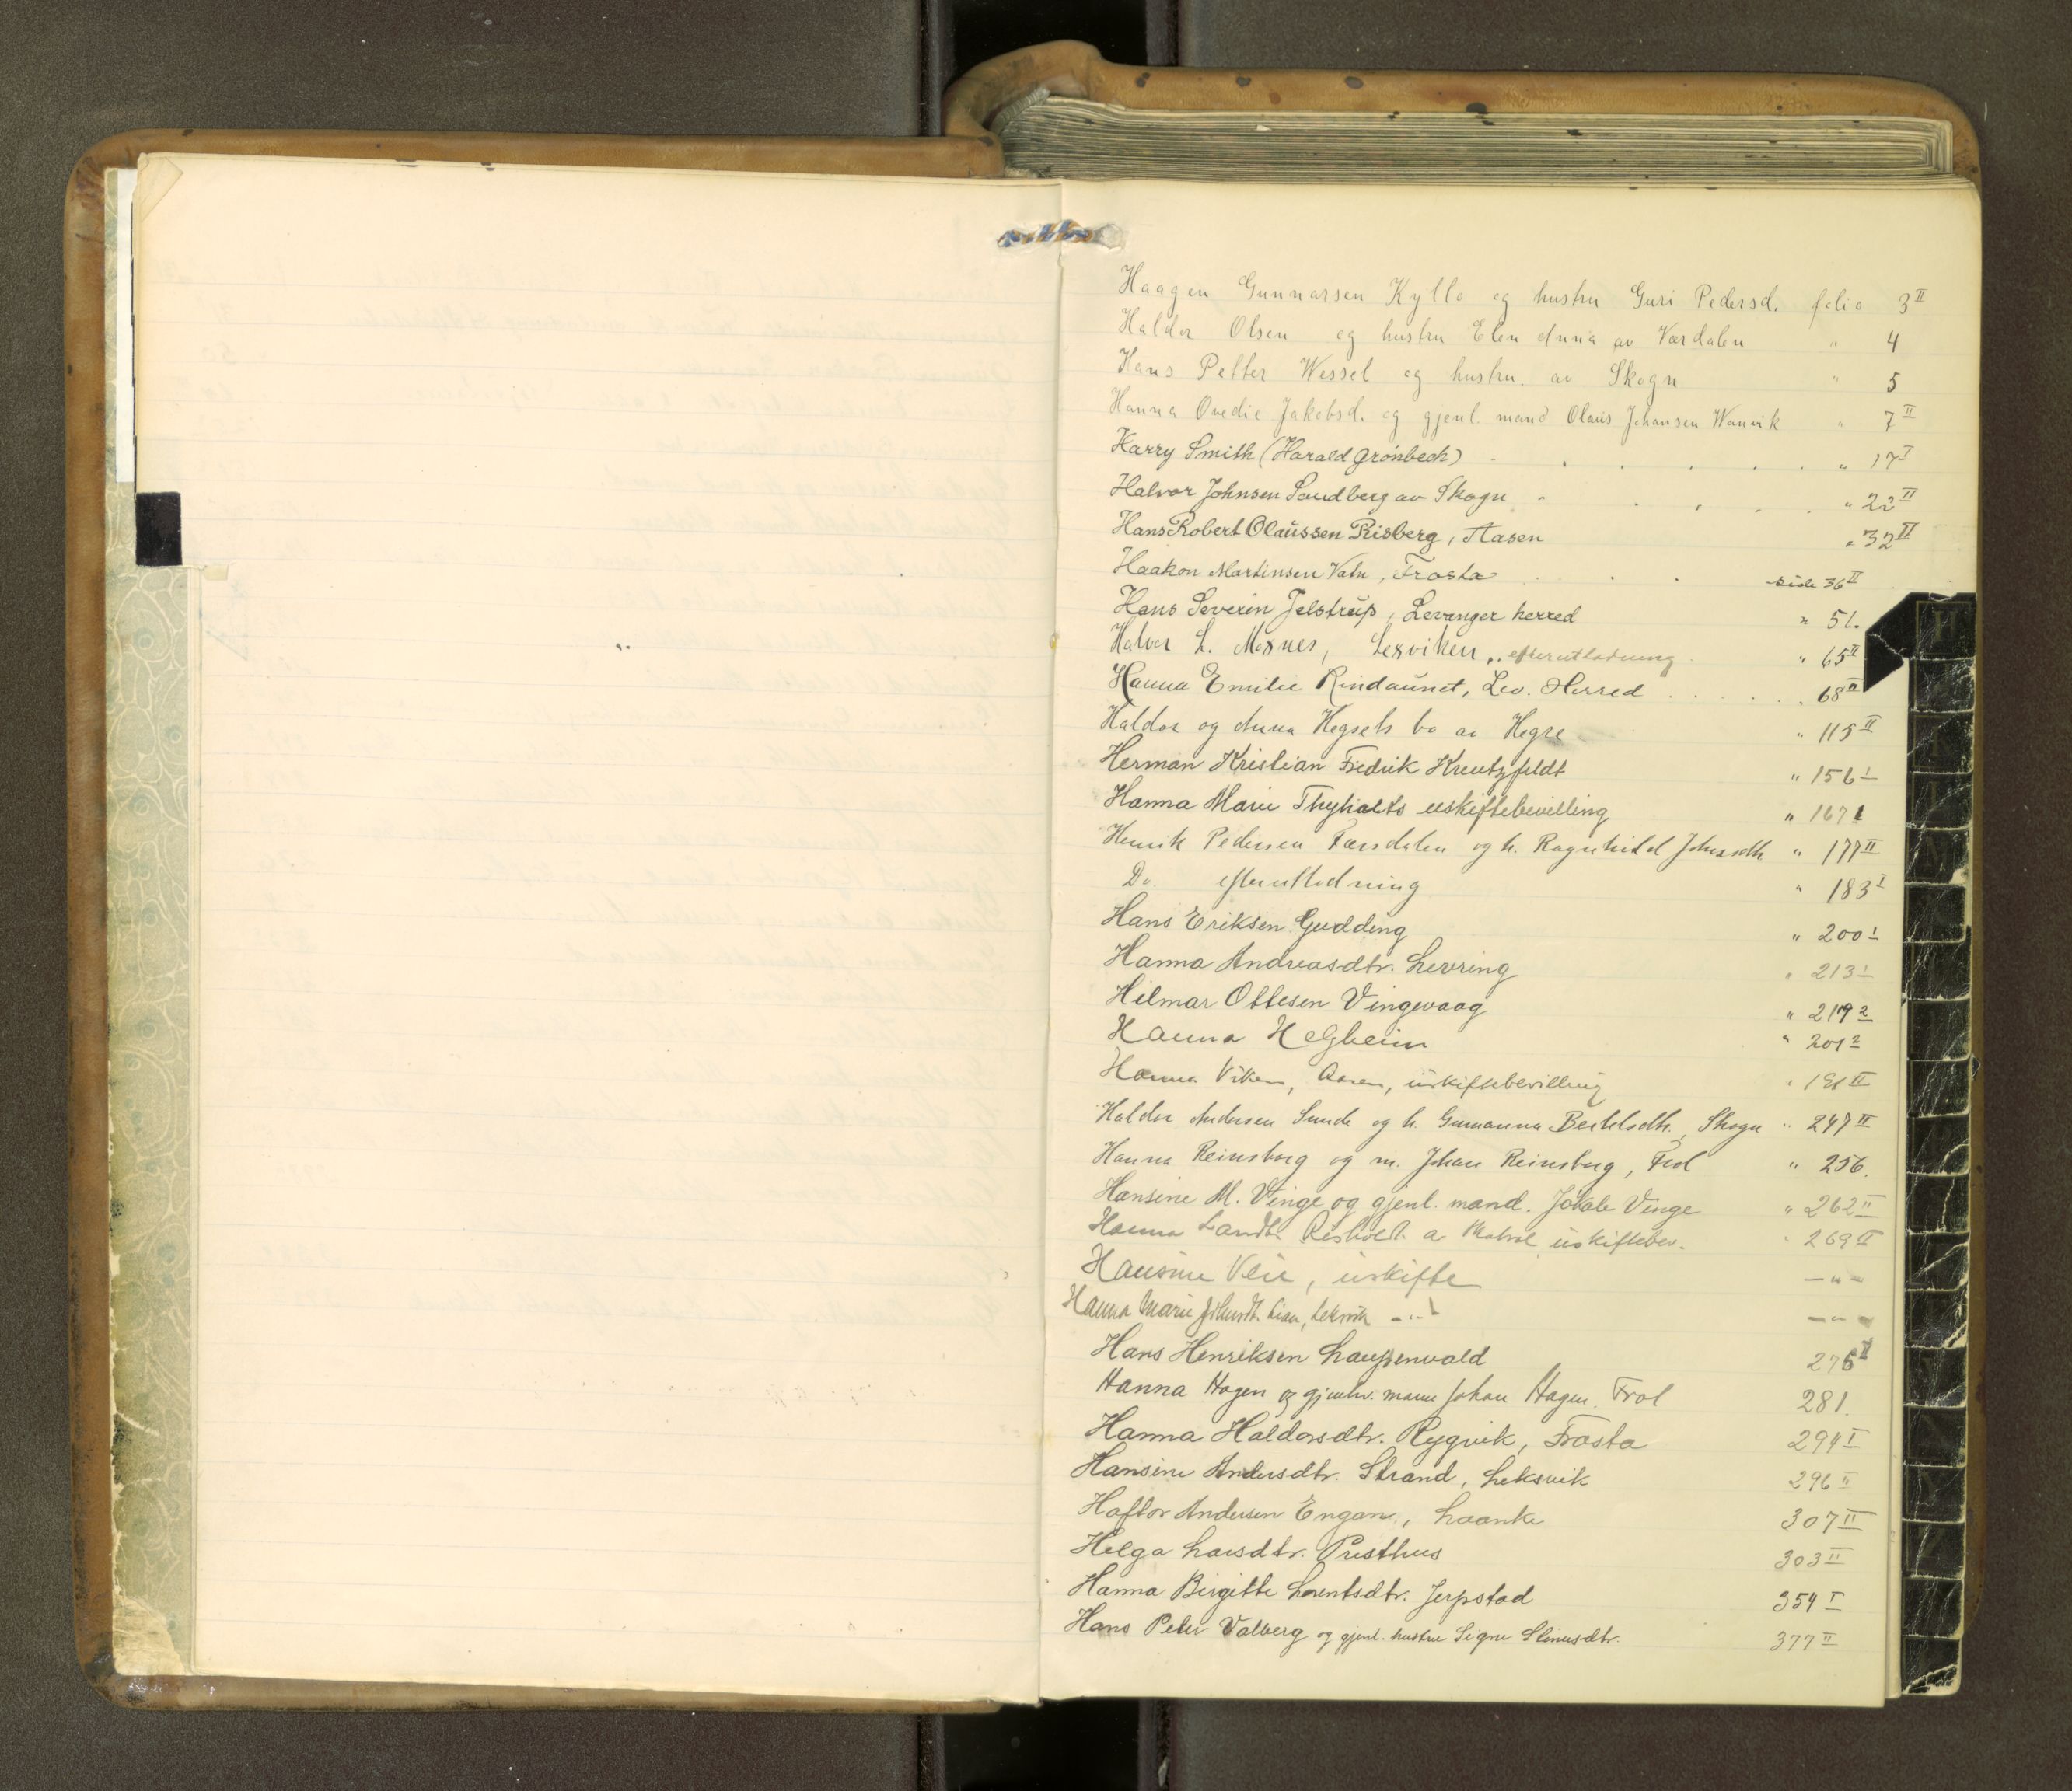 Haagen Gunnarsen Kyllo og hustru Guri Pedersd. folio 3 II
Haldor Olsen og hustru Elen Anna av Værdalen " 4
Hans Petter Wessel og hustru. av Skogn " 5
Hanna Ovedie Jakobsd. og gjenl. mand Olaus Johansen Wanvik " 7 II
Harry Smith (Harald Grønbech) " 17 I
Halvor Johnsen Sandberg av Skogn " 22 II
Hans Robert Olaussen Risberg, Aasen " 32 II
Haakon Martinsen Vatn, Frosta side 36 II
Hans Severin Jelstrup, Levanger herred " 51.
Halvor L. Moxnes, Lexviken, efterutlodning " 65 II
Hanna Emilie Rindaunet, Lev. Herred " 68 II
Haldor og Anna Hegsets bo av Hegre " 115 II
Herman Kristian Fredrik Kreutzfeldt " 156 I
Hanna Marie Thyholts uskiftebevilling " 167 1
Henrik Pedersen Færsdalen og h. Ragnhild Johnsdtr. " 177 II
Do efterutlodning " 183 I
Hans Eriksen Gudding " 200 1
Hanna Andreasdtr. Levring " 213 1
Hilmar Ottesen Vingevaag " 219 2
Hanna Helgheim " 201 2
Hanna Viken, Aasen, uskiftebevilling " 191 II
Haldor Andersen Sunde og h. Gunanna Bertelsdtr., Skogn " 247 II
Hanna Reinsborg og m. Johan Reinsborg, Frol " 256.
Hansine M. Vinge og gjenl. mand. Vinge " 262 II
Hanna uskiftebev. " 269 II
Hansine Veie, uskifte — " —
Hanna Marie Lian, Leksvik — " — — " —
Hans Henriksen Laupenvald 276 I
Hanna Hagen og gjenlev. mann Johan Hagen. Frol 281.
Hanna Haldorsdtr. Rygvik, Frosta 294 I
Hansine Andersdtr. Strand, Leksvik 296 II
Haftor Andersen Engan, Laanke 307 II
Helga Larsdtr. Presthus 303 II
Hanna Birgitte Lorentsdtr. Jerpstad 354 I
Hans Peter Valberg og gjenl. hustru Signe Slinusdtr. 377 II